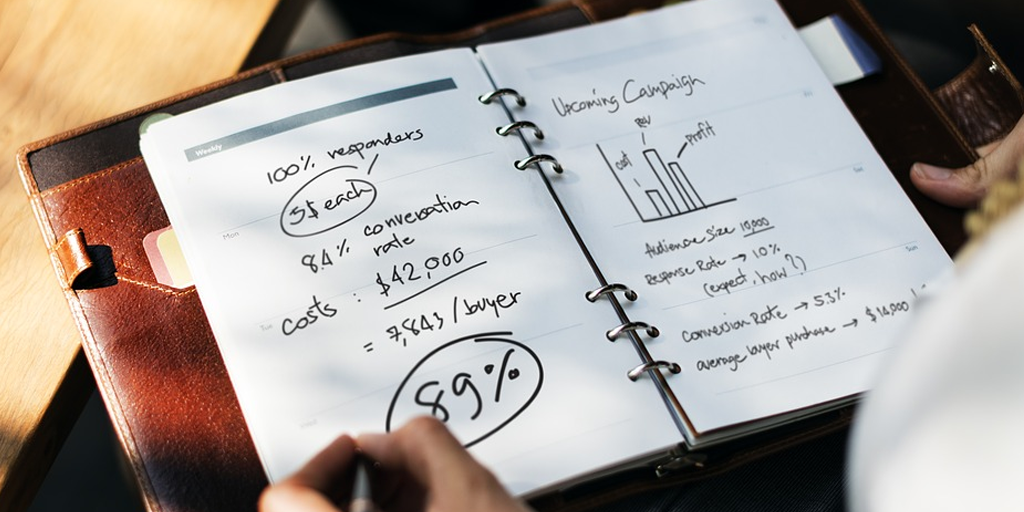 Weekly
100% responders
5$ each
8.4% conversation
rate
Costs : $42,000
= 7,843/buyer
89%
Mon
Tue
Upcoming Campaign
cost
rev
profit
Audience Size 10,000
Response Rate → 10%
(expect, how?)
Conversion Rate → 5.3%
average buyer purchase → $14,000